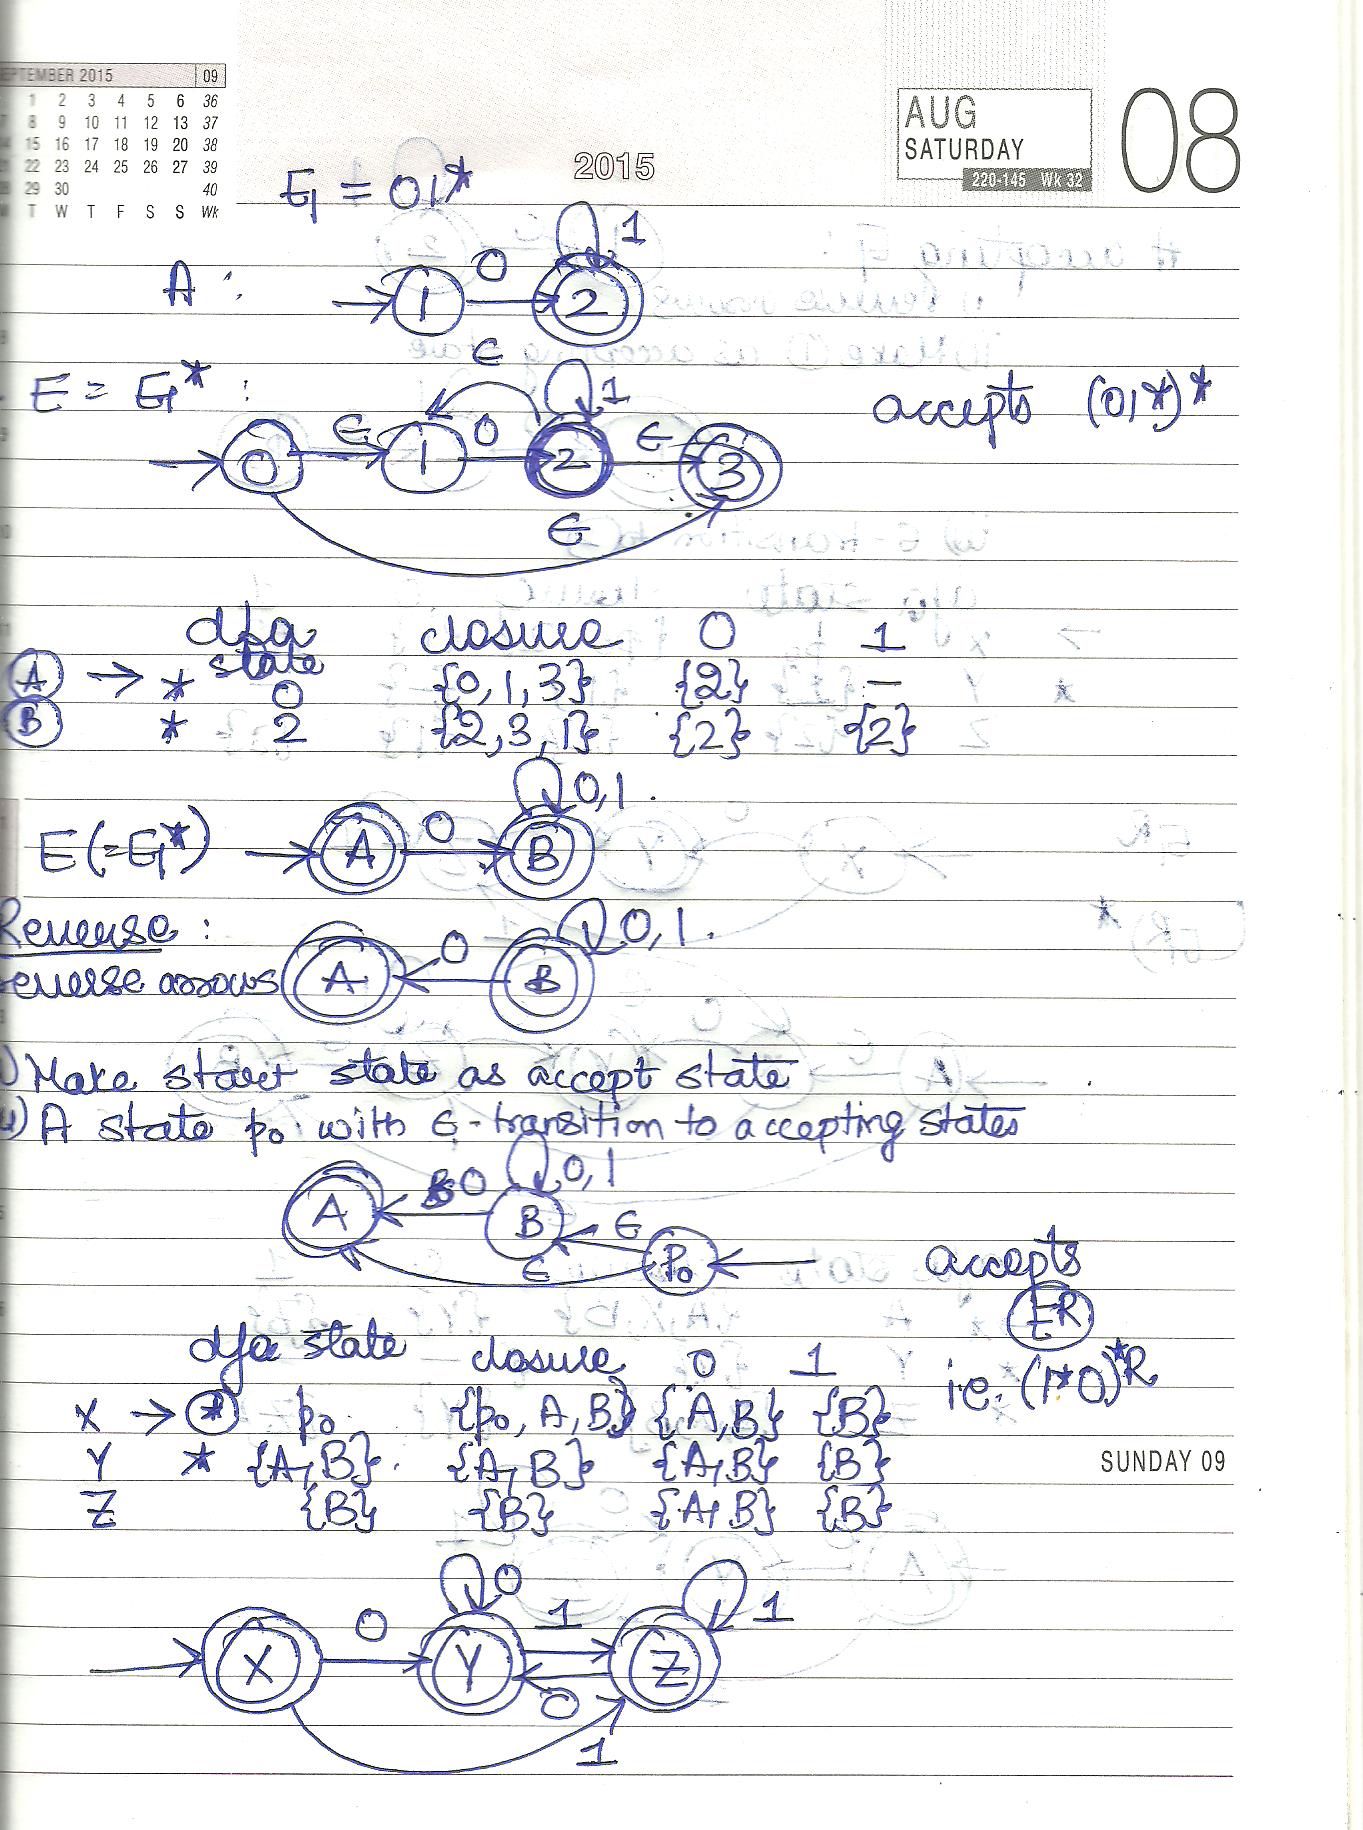 SEPTEMBER 2015 09
1 2 3 4 5 6 36
8 9 10 11 12 13 37
15 16 17 18 19 20 38
22 23 24 25 26 27 39
29 30 40
T W T F S S Wk
AUG
SATURDAY
220-145 Wk 32
08
2015
E₁ = 01*
A :
1 0 2 1
E = E₁* :
accepts (01*)*
0 ϵ 1 0 2 ϵ 3 ϵ 1 ϵ
dfa state closure 0 1
A → * 0 {0,1,3} {2} –
B * 2 {2,3,1} {2} {2}
E(=E₁*) A 0 B 0,1.
Reverse :
reverse arrows A 0 B 0,1.
) Make start state as accept state
) A state p₀ with ϵ-transition to accepting states
A 0 B 0,1 ϵ ϵ P₀
accepts
E^R
i.e. (1*0)*R
dfa state closure 0 1
X → * p₀ {p₀, A, B} {A,B} {B}
Y * {A,B}. {A,B} {A,B} {B}
Z {B} {B} {A,B} {B}
SUNDAY 09
X 0 Y 0 1 Z 1
0
1